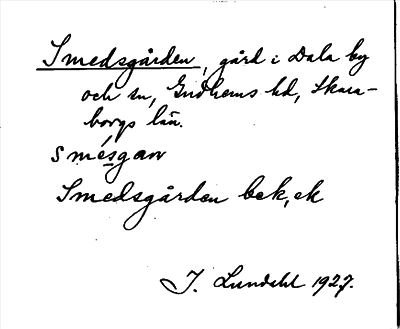 Smedsgården, gård i Dala by
och sn, Gudhems hd, Skara-
borgs län.
smésgan
Smedsgården bek, ek
J. Lundahl 1927.